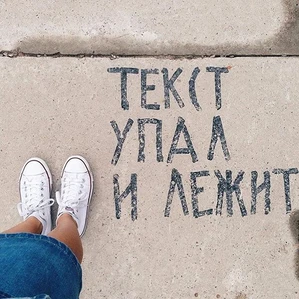 ТЕКСТ
УПАЛ
И ЛЕЖИТ